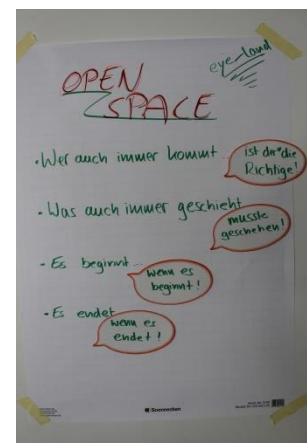 eye-land
OPEN
SPACE
• Wer auch immer kommt...
ist der*die
Richtige!
• Was auch immer geschieht
musste
geschehen!
- Es beginnt...
wenn es
beginnt!
• Es endet
wenn es
endet!
Soennecken